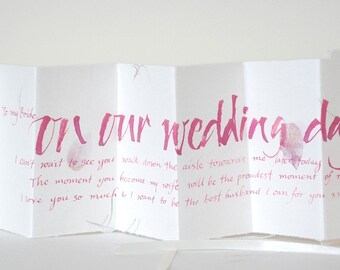 To my Bride
on our wedding da
I can't wait to see you walk down the aisle towards me later today
The moment you become my wife will be the proudest moment of m
I love you so much & I want to be the best husband I can for you xx